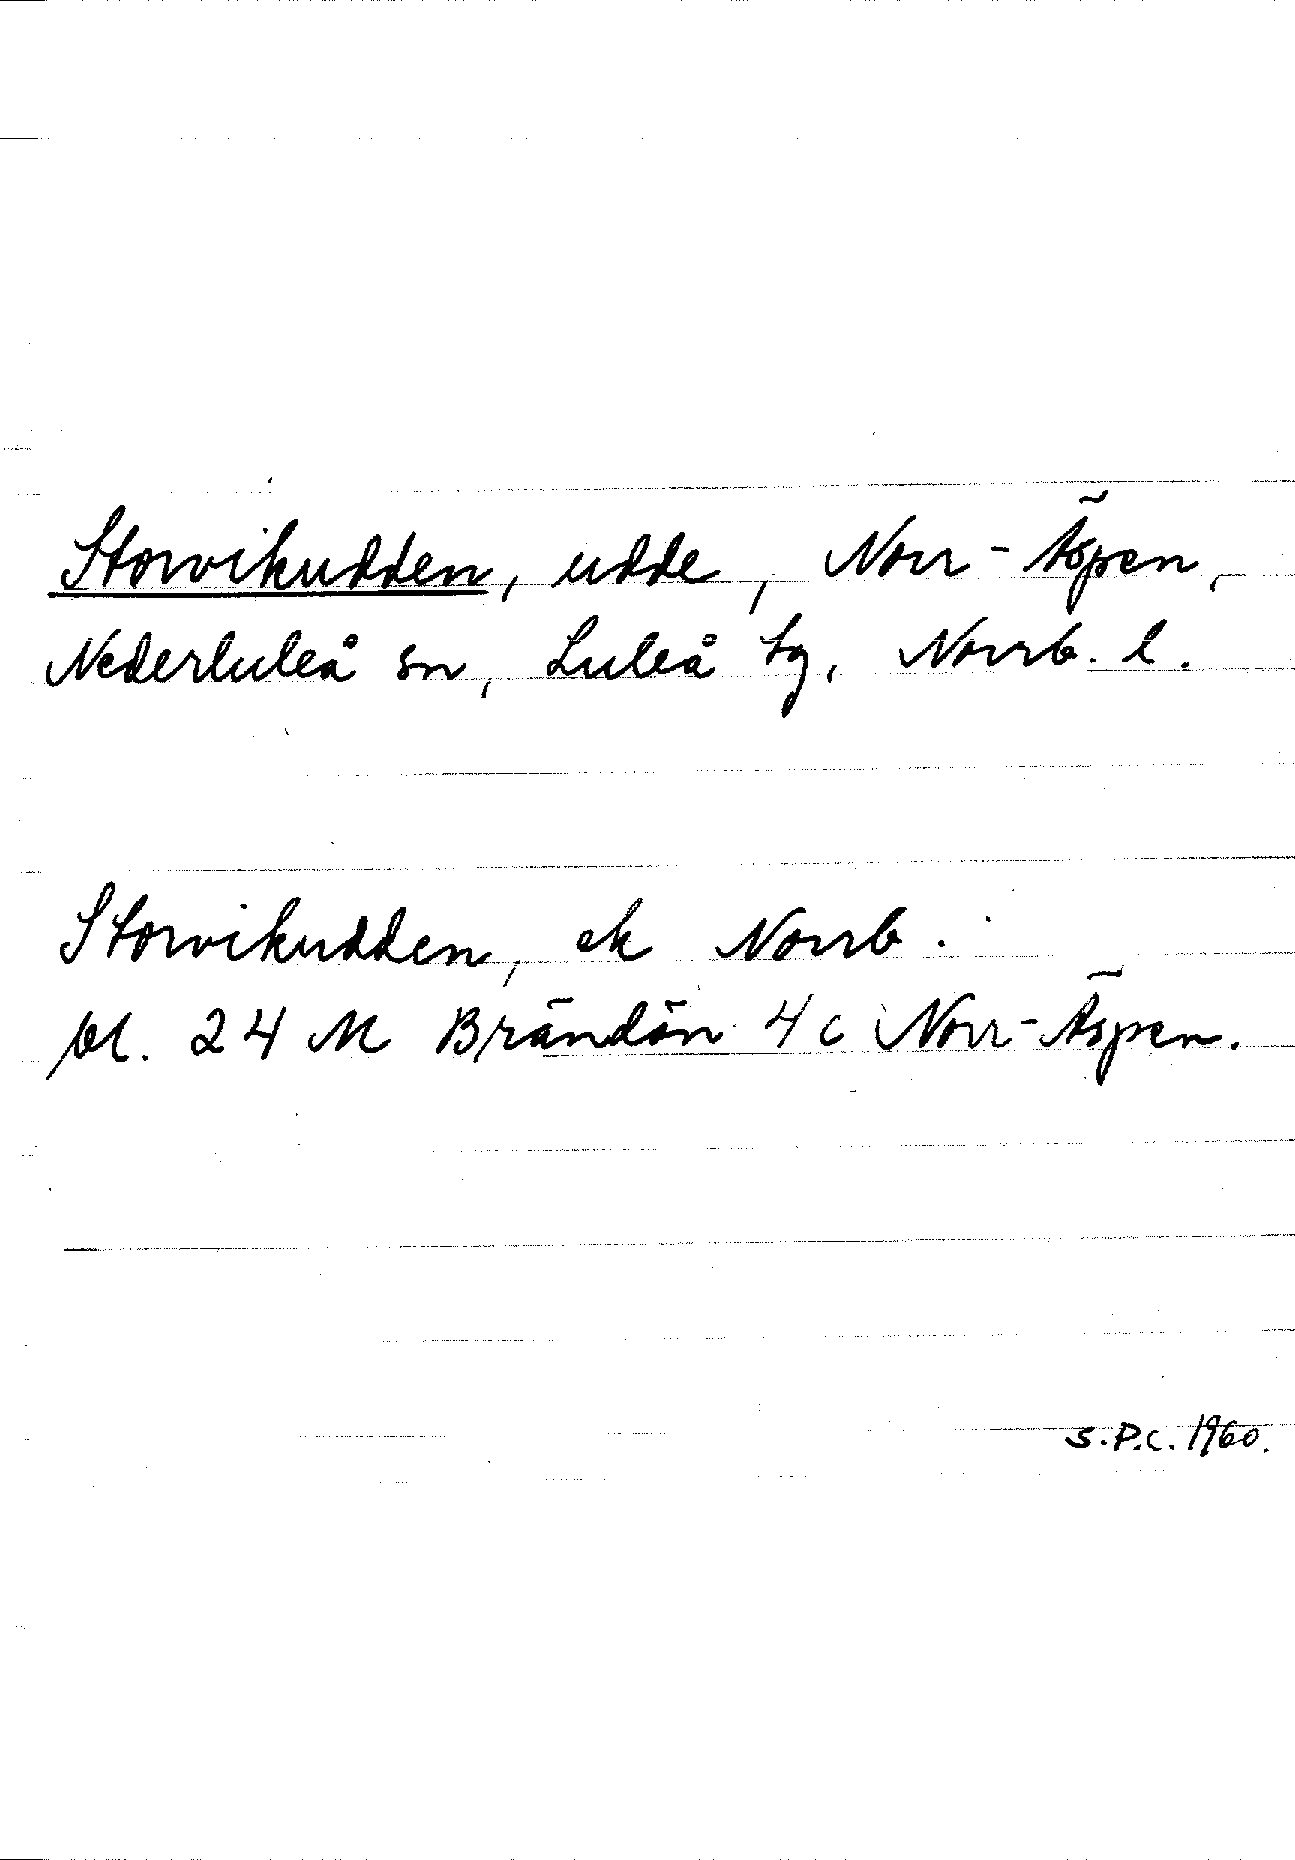 Storvikudden, udde, Norr-Äspen,
Nederluleå sn, Luleå tg, Norrb. l.
Storvikudden, ek Norrb.
bl. 24 M Brändön 4c Norr-Äspen.
S.P.C. 1960.